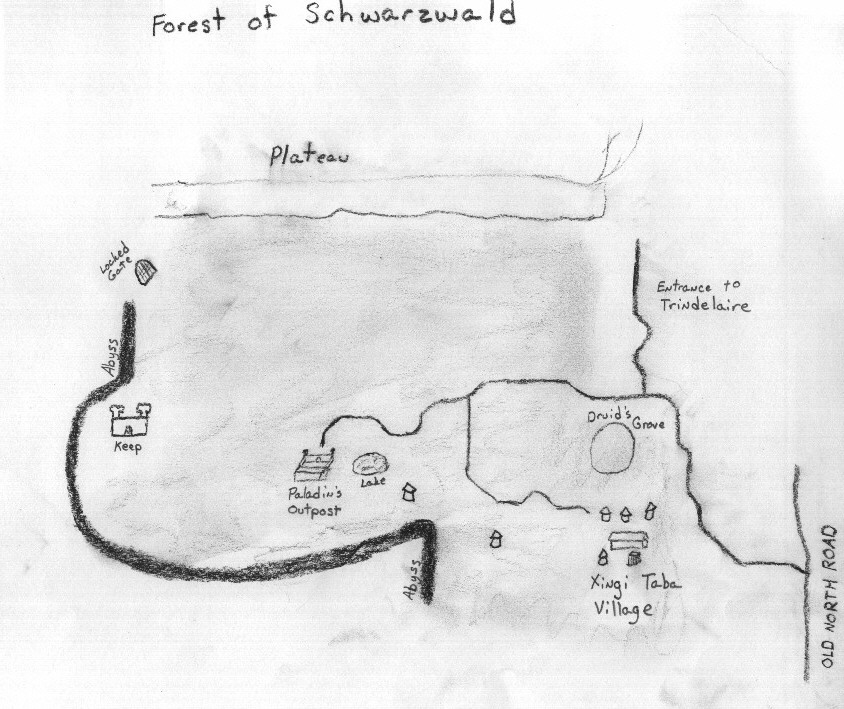 Forest of Schwarzwald
Plateau
Locked
Gate
Entrance to
Trindelaire
Abyss
Druid's
Grove
Keep
Lake
Paladin's
Outpost
Abyss
Xingi Taba
Village
OLD NORTH ROAD